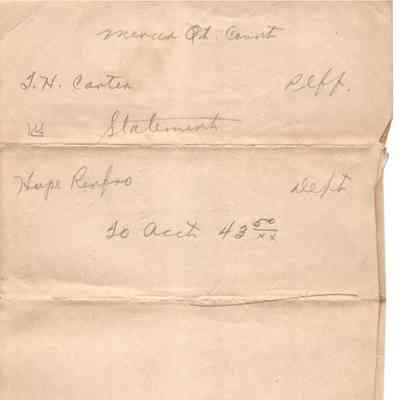 Mercer Qt. Court
T. H. Carter Plff.
vs Statement
Hope Renfro Deft
To Acct 43 50/xx